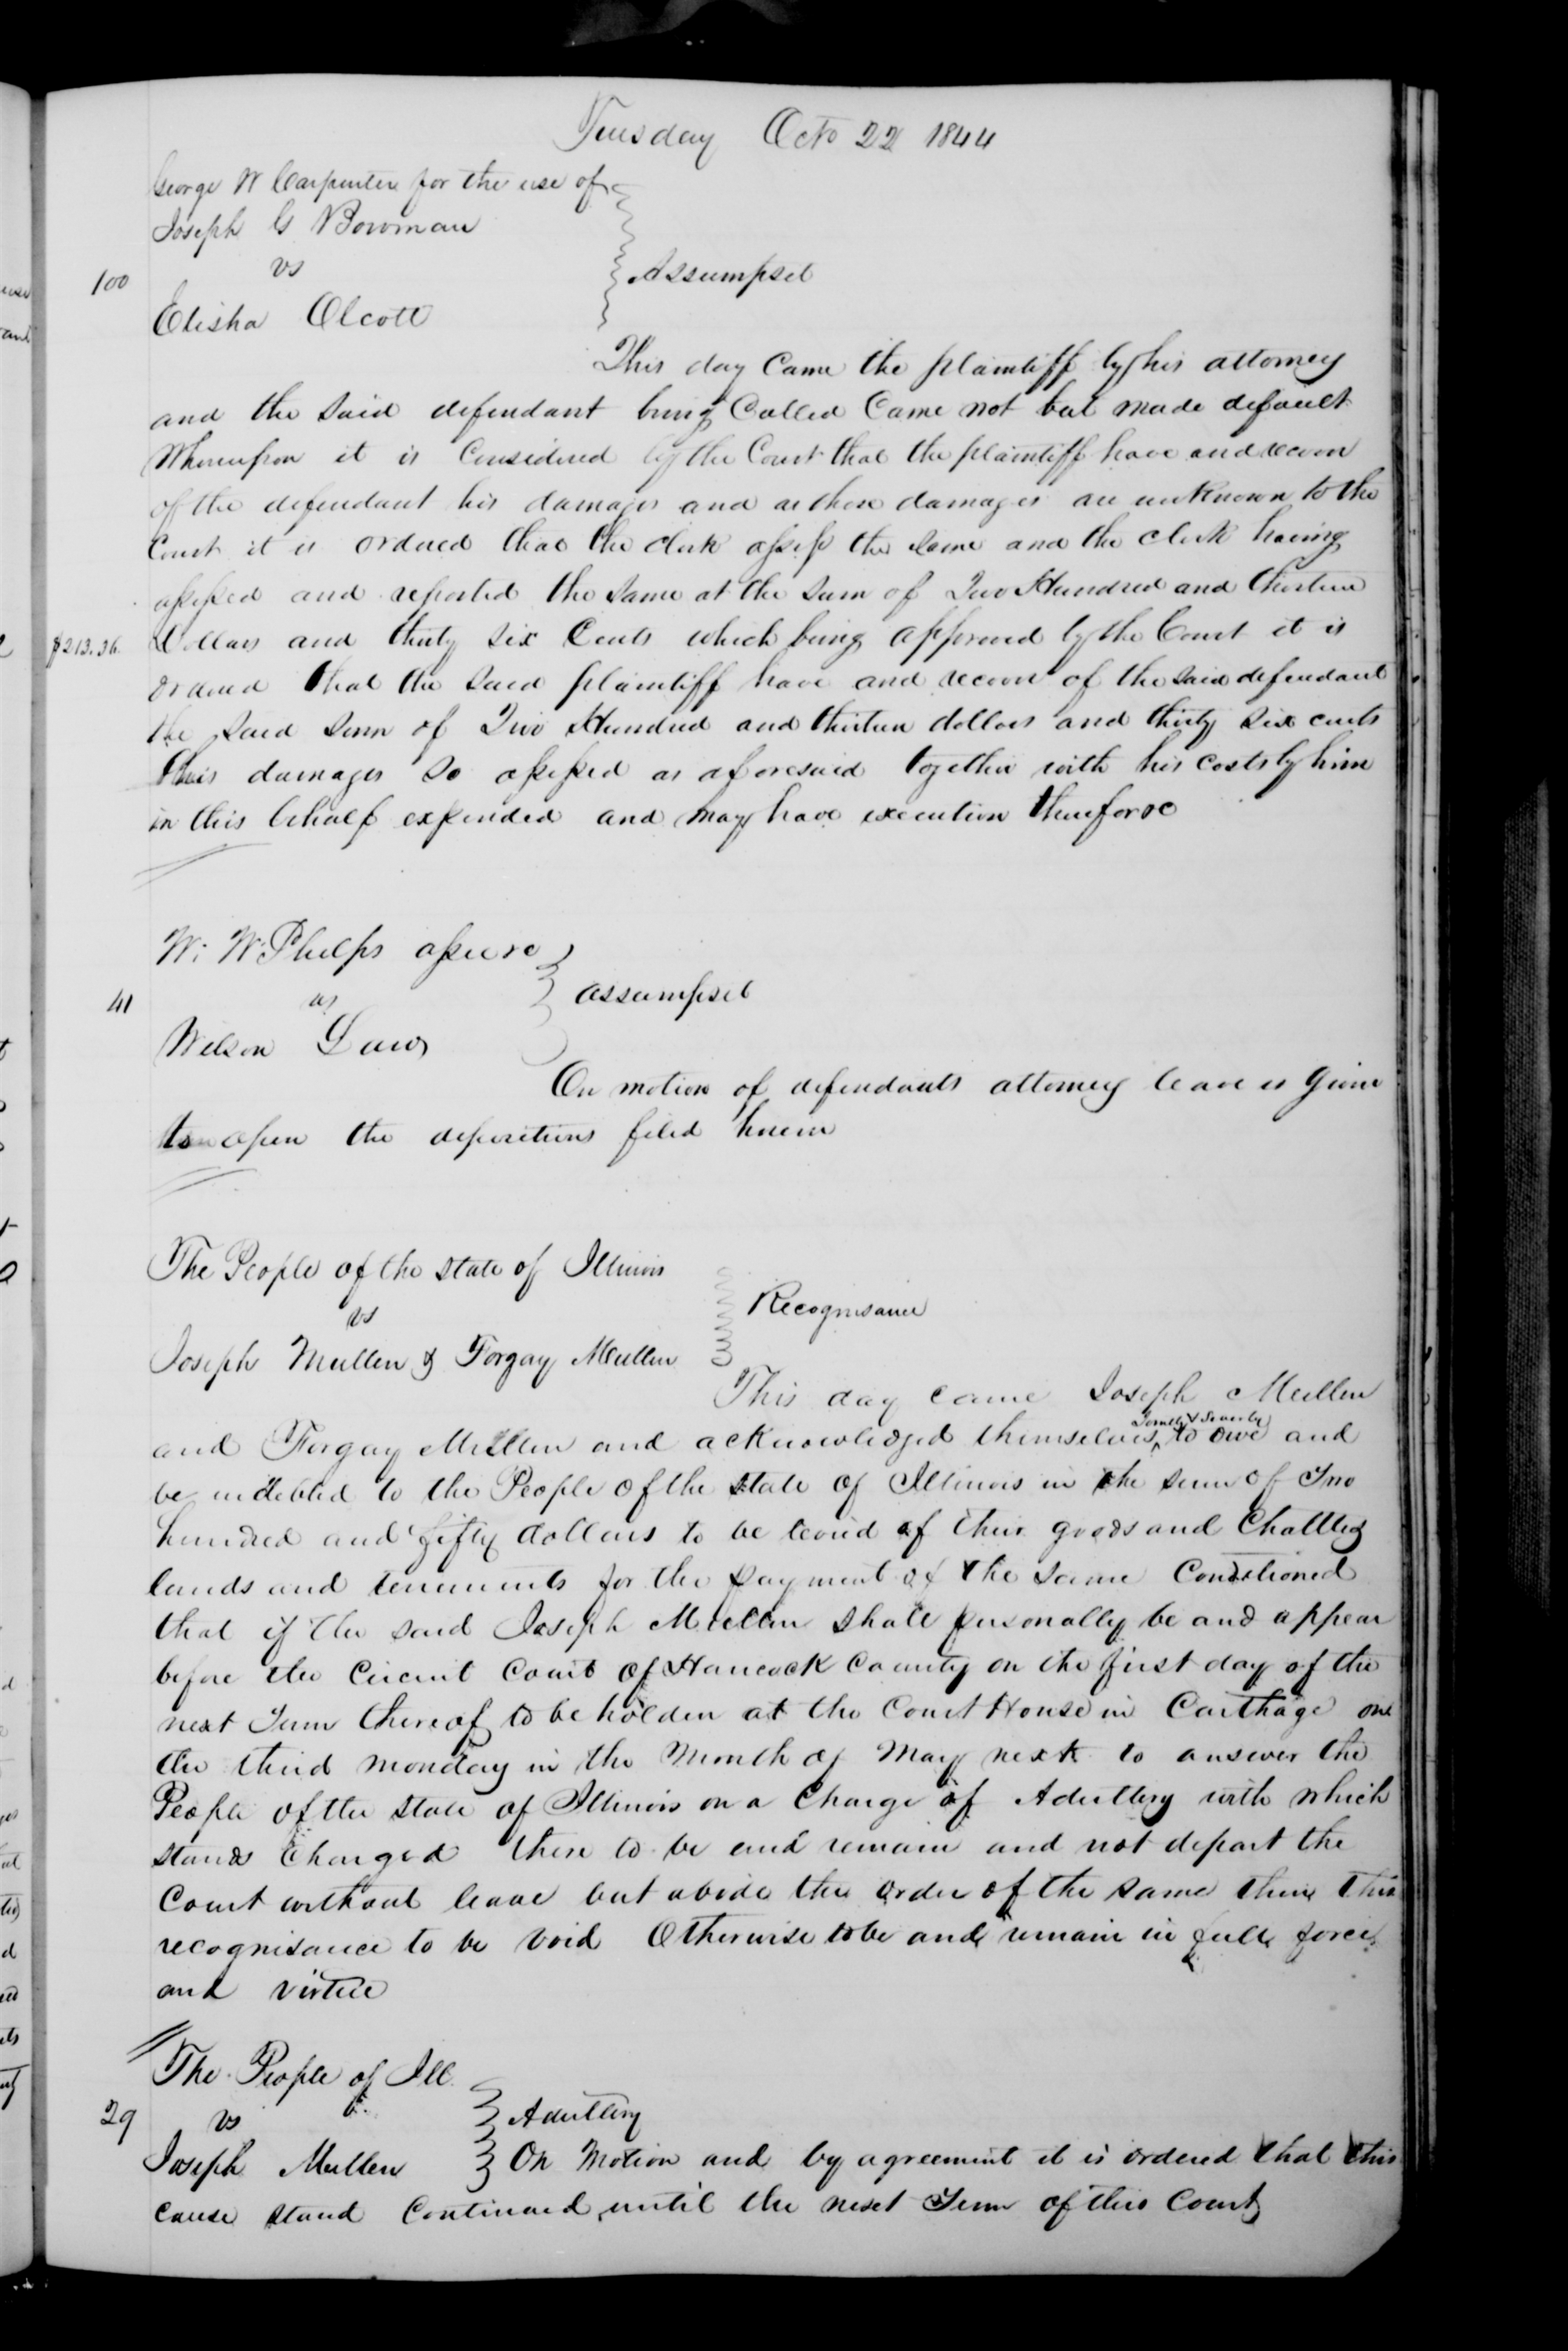 Tuesday Octo 22 1844
George W Carpenter for the use of
Joseph G Bowman
vs
100
Assumpsit
Elisha Olcott
This day Came the plaintiff by his attorney
and the said defendant being Called Came not but made default
Whereupon it is Considered by the Court that the plaintiff have and recover
of the defendant his damages and as those damages are unknown to the
Court it is ordered that the clerk assess the same and the clerk having
assessed and reported the same at the sum of Two Hundred and thirteen
$213.36 Dollars and thirty six Cents which being approved by the Court it is
ordered that the said plaintiff have and recover of the said defendant
the said sum of Two Hundred and thirteen dollars and thirty six cents
his damages so assessed as aforesaid together with his costs by him
in this behalf expended and may have execution therefore
W. W. Phelps
vs
41
assumpsit
Wilson Law
On motion of defendants attorney leave is given
to open the depositions filed herein
The People of the state of Illinois
vs
Recognisance
Joseph Mullen & Forgay Mullen
This day came Joseph Mullen
and Forgay Mullen and acknowledged themselves Jointly & Severly to owe and
be indebted to the People of the State of Illinois in the sum of Two
hundred and fifty dollars to be levied of their goods and Chattles
lands and tenements for the payment of the same Conditioned
that if the said Joseph Mullen shall personally be and appear
before the Circuit Court of Hancock County on the first day of the
next Term thereof to be holden at the Court House in Carthage on
the third monday in the Month of May next to answer the
People of the State of Illinois on a Charge of Adultery with which
stands Charged there to be and remain and not depart the
Court without leave but abide the order of the same then this
recognisance to be void Otherwise to be and remain in full force
and virtue
The People of Ill.
29 vs
Adultery
Joseph Mullen On Motion and by agreement it is ordered that this
cause stand Continued until the next Term of this Court